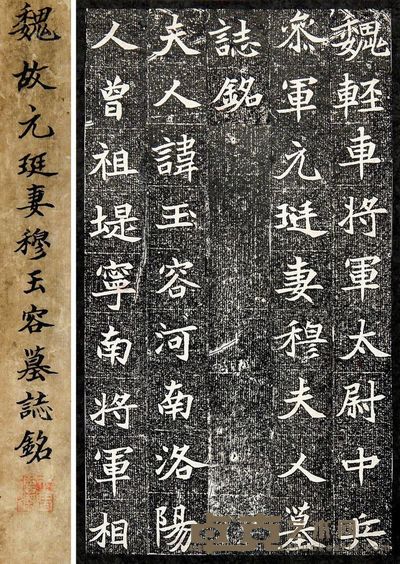 魏故元珽妻穆玉容墓誌銘
魏輕車將軍太尉中兵
叅軍元珽妻穆夫人墓
誌銘
夫人諱玉容河南洛陽
人曾祖堤寧南將軍相